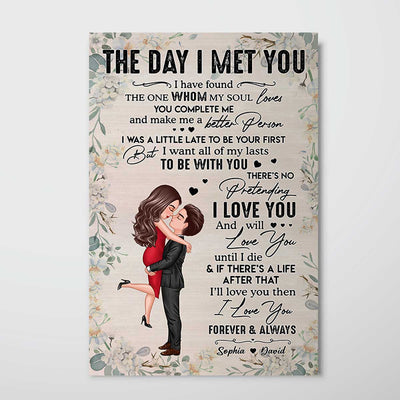 THE DAY I MET YOU
I have found
THE ONE WHOM MY SOUL loves
YOU COMPLETE ME
and make me a better Person
I WAS A LITTLE LATE TO BE YOUR FIRST
But I want all of my lasts
TO BE WITH YOU
THERE'S NO
Pretending
I LOVE YOU
And will
Love You
until I die
& IF THERE'S A LIFE
AFTER THAT
I'll love you then
I Love You
FOREVER & ALWAYS
Sophia David